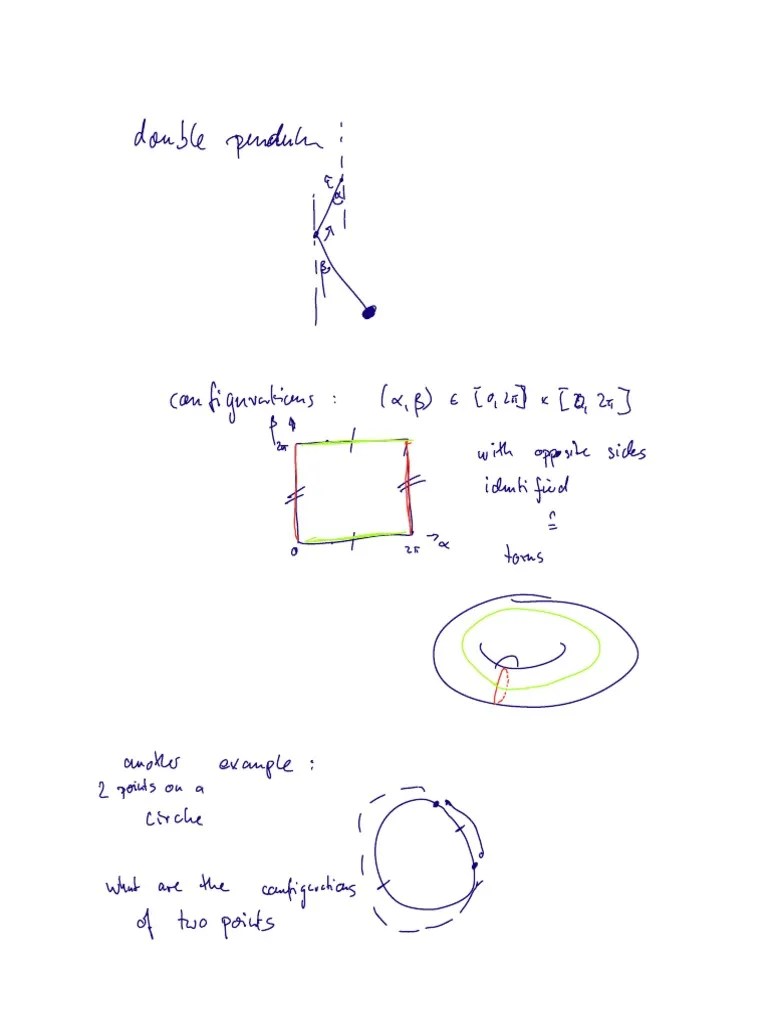 double pendulum :
α
β
configurations : (α, β) ∈ [0, 2π] × [0, 2π]
β
2π
with opposite sides
identified
≅
0
2π → α
torus
another example :
2 points on a
circle
what are the configurations
of two points